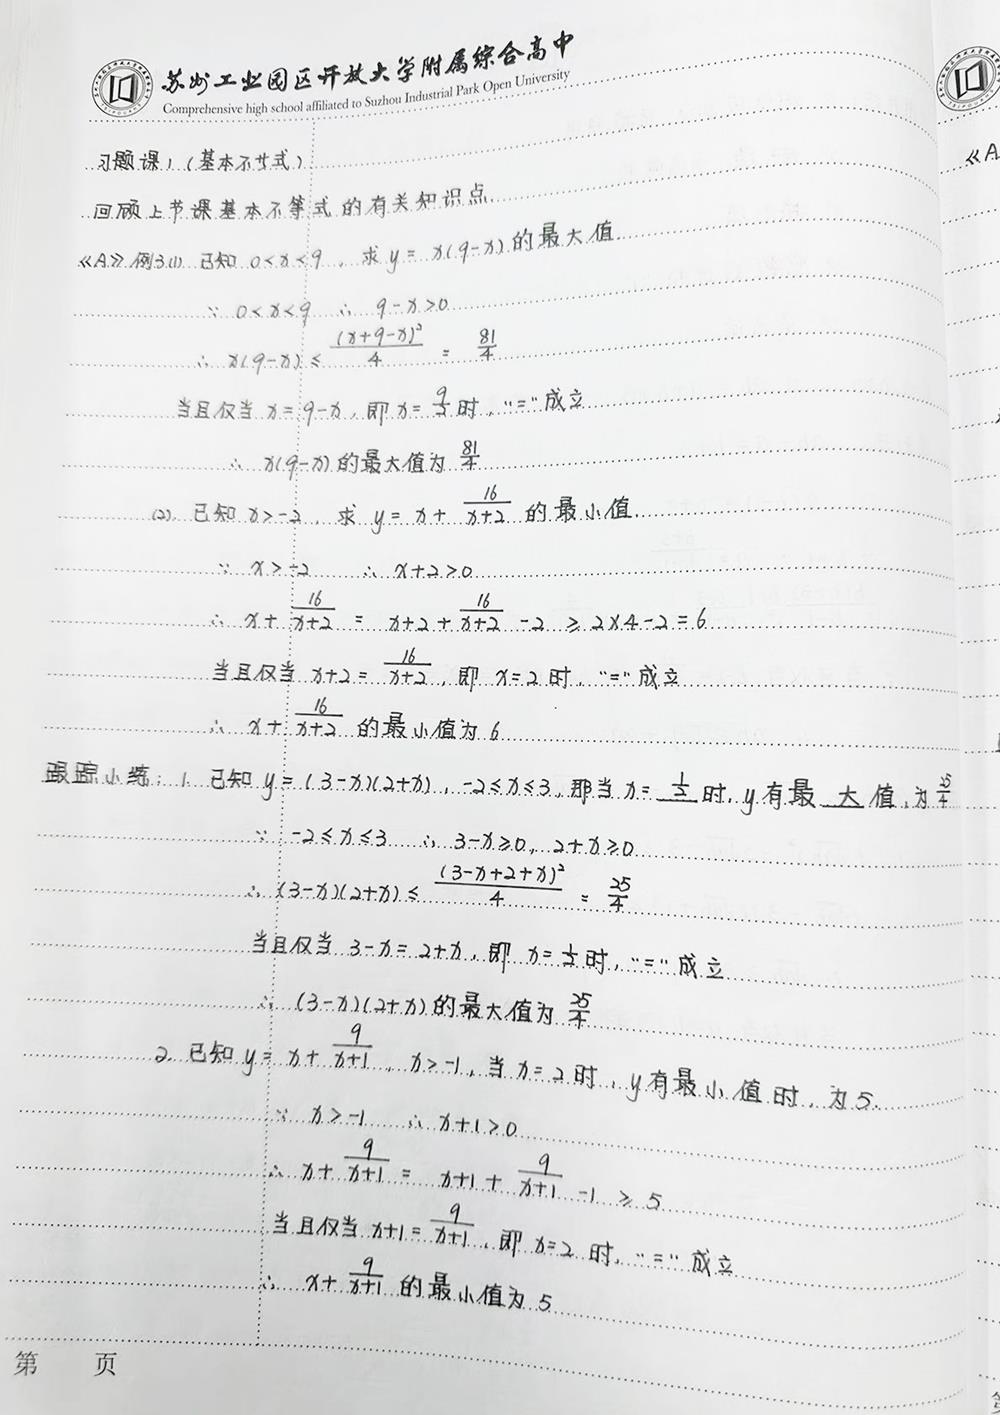 苏州工业园区开放大学附属综合高中
Comprehensive high school affiliated to Suzhou Industrial Park Open University
习题课1（基本不等式）
回顾上节课基本不等式的有关知识点.
《A》例3.(1) 已知 0<x<9，求 y=x(9-x)的最大值.
∵ 0<x<9 ∴ 9-x>0
∴ x(9-x) ≤ (x+9-x)²/4 = 81/4
当且仅当 x=9-x, 即 x=9/2 时, "="成立
∴ x(9-x)的最大值为 81/4
(2) 已知 x>-2, 求 y= x+ 16/(x+2) 的最小值.
∵ x>-2 ∴ x+2>0
∴ x+ 16/(x+2) = x+2+ 16/(x+2) -2 ≥ 2×4-2=6
当且仅当 x+2= 16/(x+2), 即 x=2 时, "="成立
∴ x+ 16/(x+2) 的最小值为 6
跟踪小练: 1. 已知 y=(3-x)(2+x), -2≤x≤3, 那当 x= 1/2 时, y有最 大 值, 为 25/4
∵ -2≤x≤3 ∴ 3-x≥0, 2+x≥0
∴ (3-x)(2+x) ≤ (3-x+2+x)²/4 = 25/4
当且仅当 3-x=2+x, 即 x=1/2 时, "="成立
∴ (3-x)(2+x)的最大值为 25/4
2. 已知 y= x+ 9/(x+1), x>-1, 当 x=2 时, y有最小值时, 为5.
∵ x>-1 ∴ x+1>0
∴ x+ 9/(x+1) = x+1+ 9/(x+1) -1 ≥ 5
当且仅当 x+1= 9/(x+1), 即 x=2 时, "="成立
∴ x+ 9/(x+1) 的最小值为 5
第 页
《A